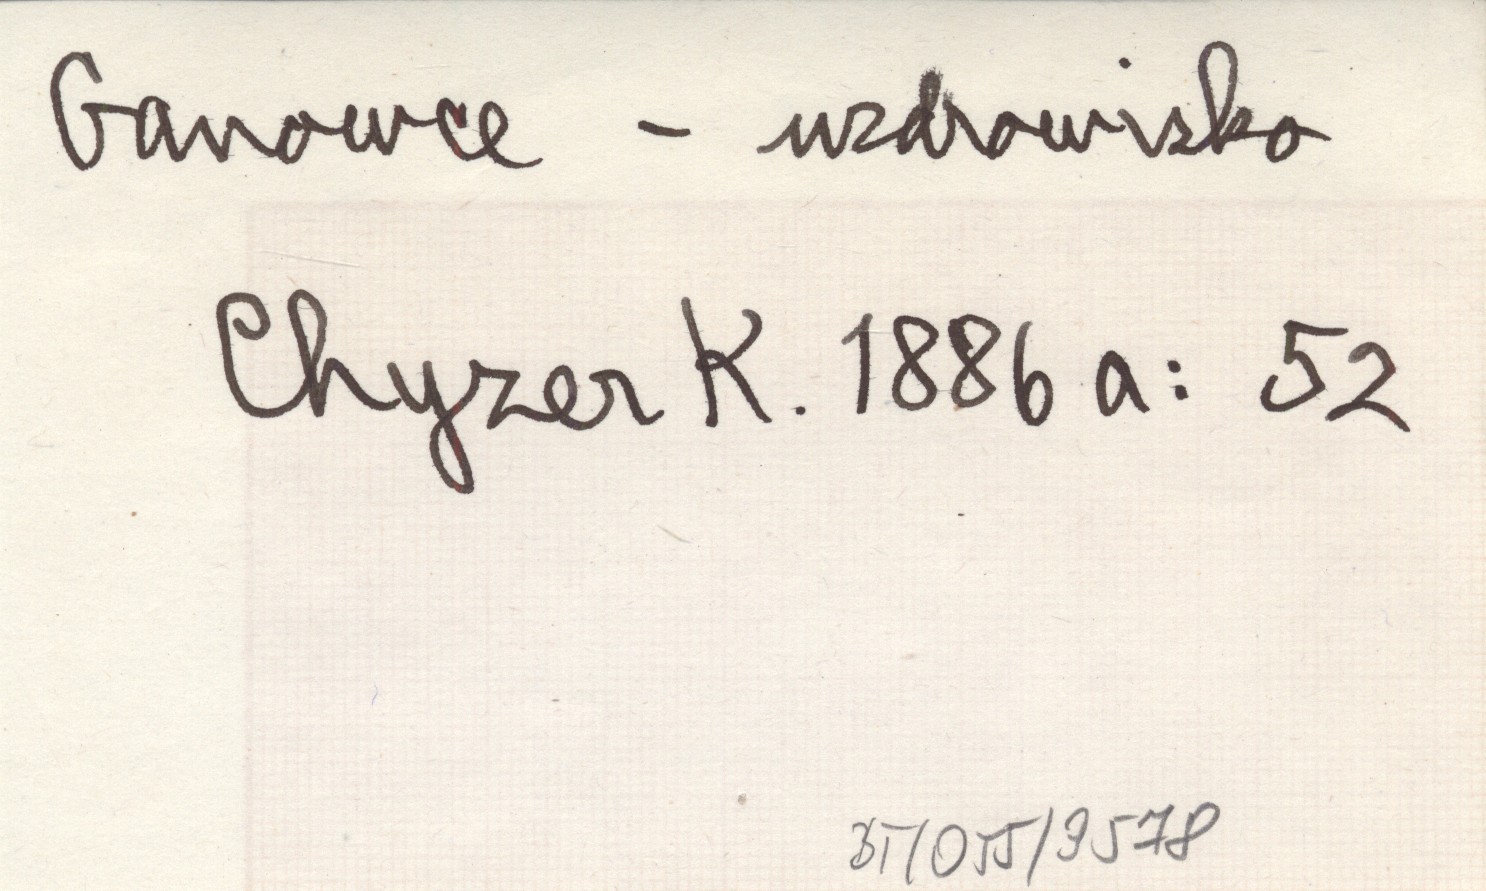 Ganowce - uzdrowisko
Chyzer K. 1886 a: 52
BT/OJT/9578